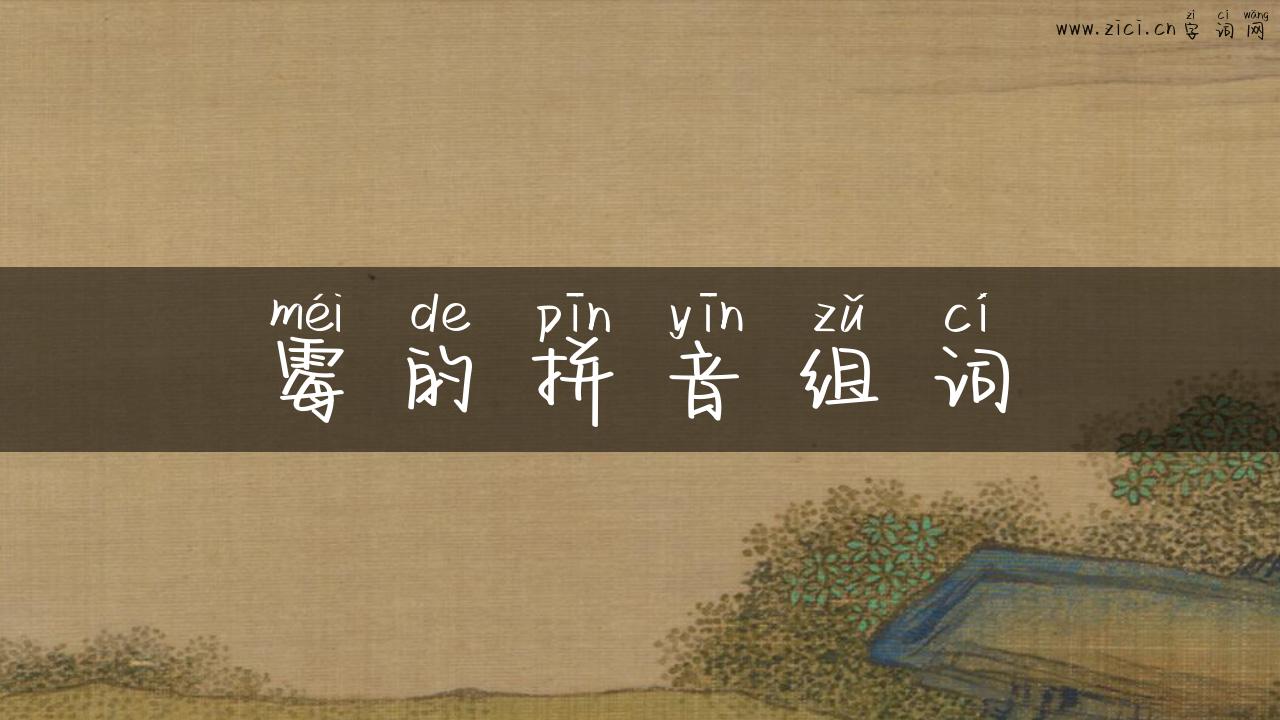 zì cí wǎng
www.zici.cn字词网
méi de pīn yīn zǔ cí
霉的拼音组词